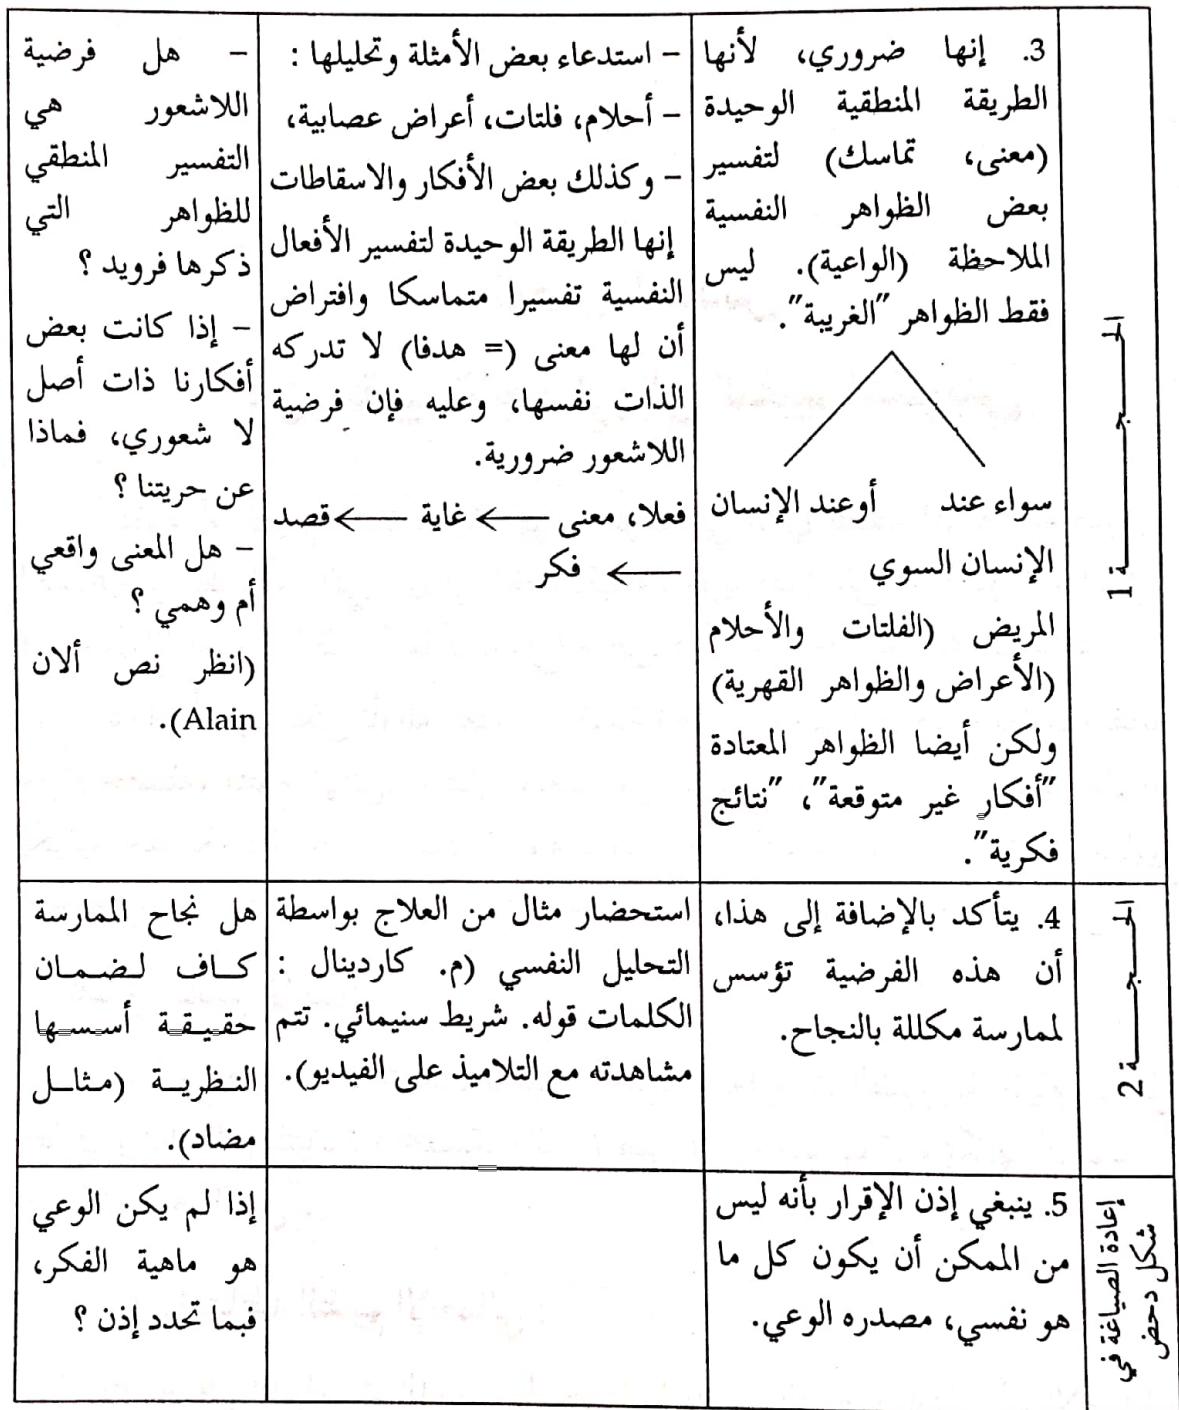 الحـجـة 1
3. إنها ضروري، لأنها
الطريقة المنطقية الوحيدة
(معنى، تماسك) لتفسير
بعض الظواهر النفسية
الملاحظة (الواعية). ليس
فقط الظواهر "الغريبة".
سواء عند أوعند الإنسان
الإنسان السوي
المريض (الفلتات والأحلام
(الأعراض والظواهر القهرية)
ولكن أيضا الظواهر المعتادة
"أفكار غير متوقعة"، "نتائج
فكرية".
– استدعاء بعض الأمثلة وتحليلها :
– أحلام، فلتات، أعراض عصابية،
– وكذلك بعض الأفكار والاسقاطات
إنها الطريقة الوحيدة لتفسير الأفعال
النفسية تفسيرا متماسكا وافتراض
أن لها معنى (= هدفا) لا تدركه
الذات نفسها، وعليه فإن فرضية
اللاشعور ضرورية.
فعلا، معنى ← غاية ← قصد
← فكر
– هل فرضية
اللاشعور هي
التفسير المنطقي
للظواهر التي
ذكرها فرويد ؟
– إذا كانت بعض
أفكارنا ذات أصل
لا شعوري، فماذا
عن حريتنا ؟
– هل المعنى واقعي
أم وهمي ؟
(انظر نص ألان
Alain).
الحـجـة 2
4. يتأكد بالإضافة إلى هذا،
أن هذه الفرضية تؤسس
لممارسة مكللة بالنجاح.
استحضار مثال من العلاج بواسطة
التحليل النفسي (م. كاردينال :
الكلمات قوله. شريط سنيمائي. تتم
مشاهدته مع التلاميذ على الفيديو).
هل نجاح الممارسة
كاف لضمان
حقيقة أسسها
النظرية (مثال
مضاد).
إعادة الصياغة في
شكل دحض
5. ينبغي إذن الإقرار بأنه ليس
من الممكن أن يكون كل ما
هو نفسي، مصدره الوعي.
إذا لم يكن الوعي
هو ماهية الفكر،
فبما تحدد إذن ؟